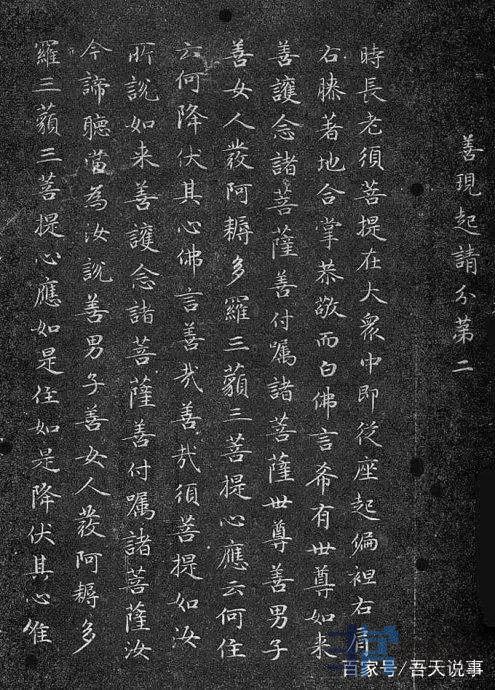 善現起請分苐二
時長老須菩提在大眾中即從座起偏袒右肩
右膝著地合掌恭敬而白佛言希有世尊如来
善護念諸菩薩善付囑諸菩薩世尊善男子
善女人發阿耨多羅三藐三菩提心應云何住
云何降伏其心佛言善哉善哉須菩提如汝
所說如来善護念諸菩薩善付囑諸菩薩汝
今諦聽當為汝說善男子善女人發阿耨多
羅三藐三菩提心應如是住如是降伏其心唯
百家号/吾天说事